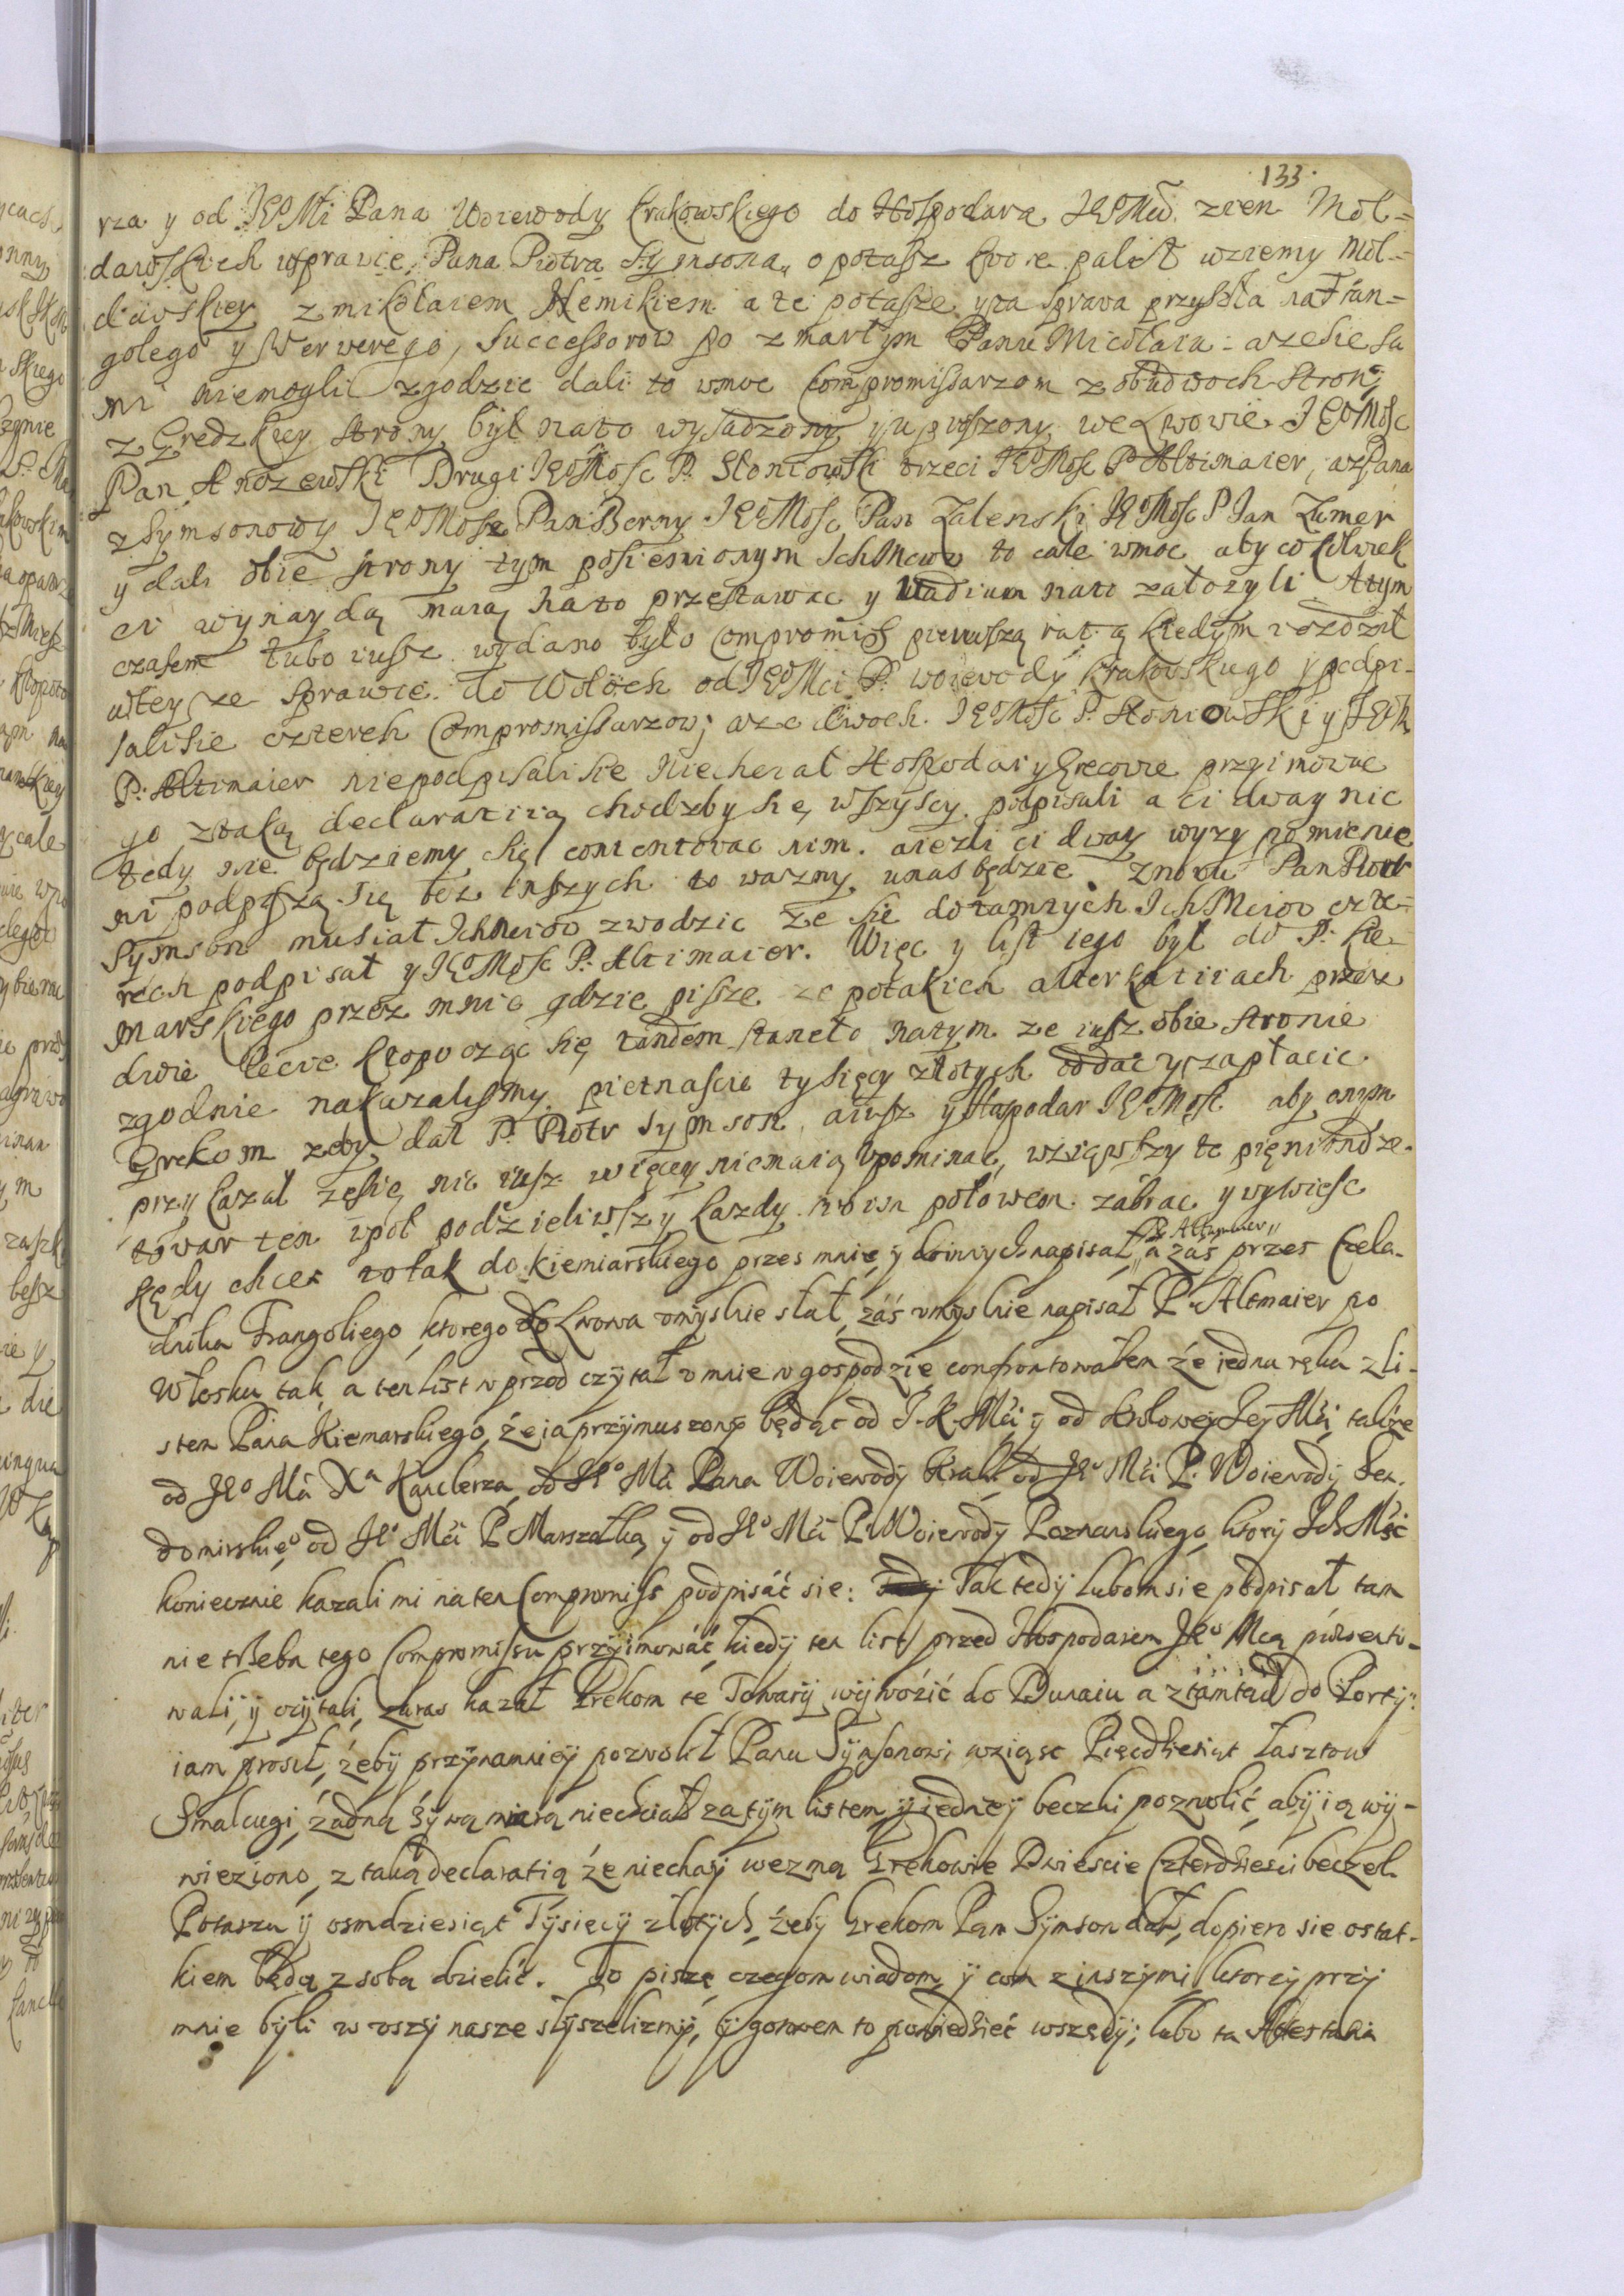 133.
rza y od JEoMći Pana Woiewody krakowskiego do Hospodara JEoMći zien Mol=
dawskich wsprawie Pana Piotra Symsona, o potasz ktore palił wziemy Mol=
dawskiey z mikołaiem Hemikiem a te potasze yta sprawa przyszła na Fran=
golego y Werwerego, Successorow po zmarłym Panu Micołaiu: aze sie sa
mi niemogli zgodzic dali to wmoc Compromissarzom z obudwoch stron;
z Gredzkiey strony był nato wysadzony yuproszony we Lwowie JEoMosc
Pan Anozewski Drugi JEoMosc P. Słoniowski trzeci JEoMosc P Altimaier, azPana
zSymsonowy JEoMosc Pan Berny JEoMosc Pan Zalenski JEoMosc P Jan Zumer
y dali obie strony tym pomienionym IchMciow to cale wmoc aby co kolwiek
ci wynaydą maią na to przestawac y Vadium nato załozyli Atym
czasem lubo iusz wydano było Compromiss pierwszą ratą kiedym iezdził
wtey ze sprawie do Wołoch od JEoMci P. woiewody krakowskiego y podpi-
sali sie czterech Compromissarzow; aze dwoch JEoMosc P. Słoniowski y JEoM
P. Altimaier niepodpisali sie Niechciał Hospodar y Grecowie przyimowac
go ztaką declaratią chodzby się wszyscy podpisali a ci dway nic
tedy nie będziemy się contentowac nim. aiezli ci dway wyzy pomienie
ni podpiszą się bez inszych to wazny unas będzie. Znowu Pan Piotr
Symson musiał Ichmciow zwodzic ze sie dotamtych IchMciow czte-
rech podpisał y JEoMosc P. Altimaier. Więc y list iego był do P. Kie-
marskiego przez mnie gdzie pisze ze potakich alterkatiiach przez
dwie lecie kłopocząc się tandem staneło natym ze iusz obie stronie
zgodnie nakazalismy pietnascie tysięcy złotych oddac y zapłacic
Grekom zeby dał P. Piotr Symson, aiusz y Haspodar JEoMosc aby onym
przykazał ze się nic iusz więcey niemaią Vpominac, wziąwszy te pięniondze.
towar ten wpoł podzieliwszy kazdy swoią połowem zabrac y wywiesc
kędy chcec to tak do Kiemiarskiego przes mnię y do innych napisał, P. Altymaier a zas przes Czela-
dnika Frangoliego, ktorego do Lwowa vmyslnie słał, záś vmyslnie napisał P. Altmaier po
Włosku tak, a ten list w przod czytał v mnie w gospodzie confrontowałem że iedna ręka z li-
stem Pana Kiemarskiego, że ia przymuszony będąc od J. K. Mći y od Krolowey Jey Mći, także
od JEo Mći Xa Kanclerza, od JEo Mći Pana Woiewody Krak: od JEo Mći P. Woiewody Sen.
domirskieo od JEo Mći P. Marszałka, y od JEo Mći P. Woiewody Poznanskiego, ktory Ich Mść
koniecznie kazali mi na ten Compromiss podpisáć sie: Tak tedy lubom sie podpisał, tam
nie trzeba tego Compromissu przyimowáć, kiedy ten list przed Hospodarem JEo Mcią prezento-
wali, y czytali, zaras kazał Grekom te Towary wywozić do Dunaiu a ztamtąd do Porty:
iam prosił, żeby przynamniey pozwolił Panu Symsonowi wziąsc Pięcdziesiąt łasztow
Smalcugi, żadną żywą miarą niechciał za tym listem y iedney beczki pozwolić, aby ią wy-
wieziono, z taką declaratią że niechay wezmą Grekowie Dwiescie Czterdziesci beczek
Potaszu y osmdziesiąt Tysięcy złotych, żeby Grekom Pan Symson dał, dopiero sie ostat-
kiem będą z sobą dzielić. To piszę czegom wiadom, y com z inszymi, ktorzy przy
mnie byli w vszy nasze słyszelismy, y gotowem to powiedzieć wszędy; lubo ta Attestatia